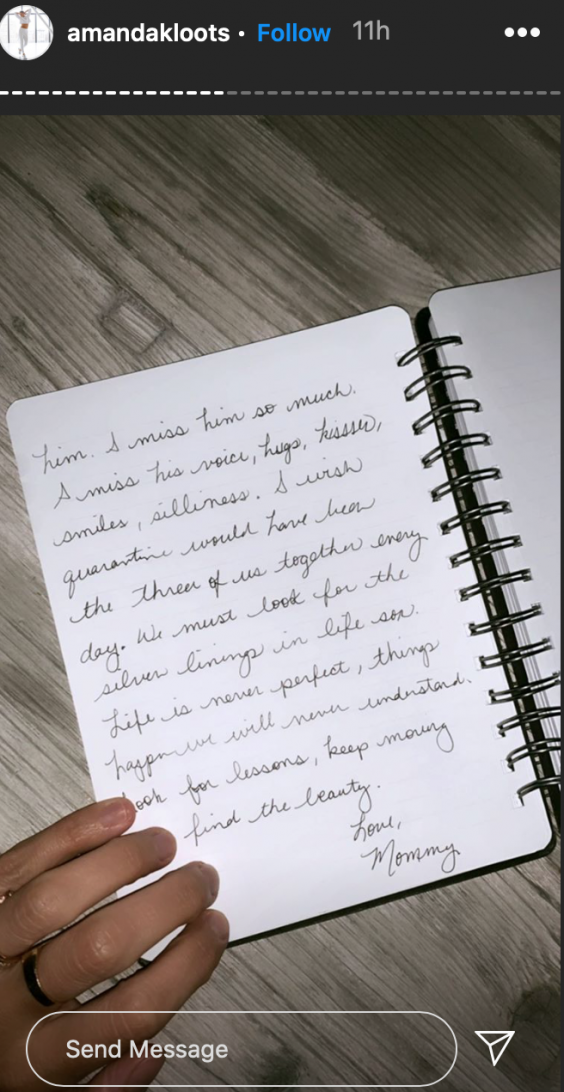 amandakloots • Follow 11h
him. I miss him so much.
I miss his voice, hugs, kisses,
smiles, silliness. I wish
quarantine would have been
the three of us together every
day. We must look for the
silver linings in life son.
Life is never perfect, things
happen we will never understand.
Look for lessons, keep moving
find the beauty.
Love,
Mommy
Send Message